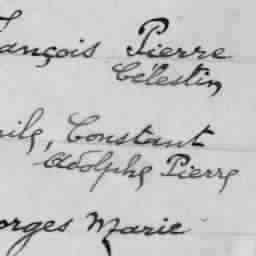 ançois Pierre
Célestin
ile, Constant
Adolphe Pierre
orges Marie